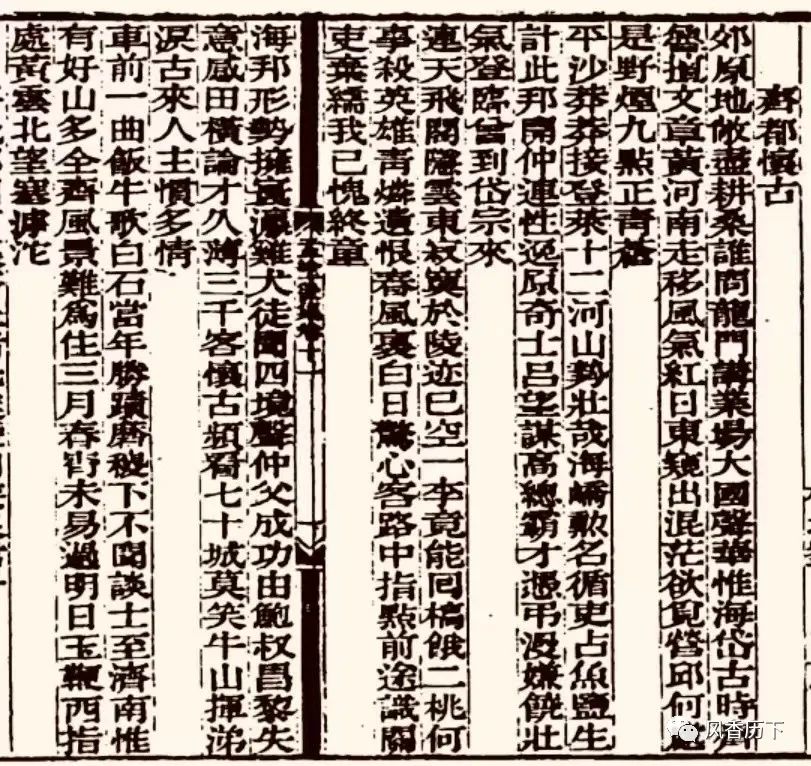 齊都懷古
郊原地敞盡耕桑誰問龍門講業場大國聲華惟海岱古時
魯擅文章黃河南走移風氣紅日東窺出混茫欲覓營邱何處
是野煙九點正青蒼
平沙莽莽接登萊十二河山勢壯哉海嶠勳名循吏占魚鹽生
計此邦開仲連性逸原奇士呂望謀高總霸才憑弔漫嫌饒壯
氣登臨曾到岱宗來
連天飛閣隱雲東寂寞於陵迹已空一李竟能回槁餓二桃何
事殺英雄青燐遺恨春風裏白日驚心客路中指點前途識關
吏棄繻我已愧終童
海邦形勢擁寰瀛雞犬徒聞四境聲仲父成功由鮑叔昌黎失
意感田橫論才久薄三千客懷古頻看七十城莫笑牛山揮涕
淚古來人主慣多情
車前一曲飯牛歌白石當年勝蹟磨稷下不聞談士至濟南惟
有好山多全齊風景難為住三月春宵未易過明日玉鞭西指
處黃雲北望塞滹沱
凤香历下